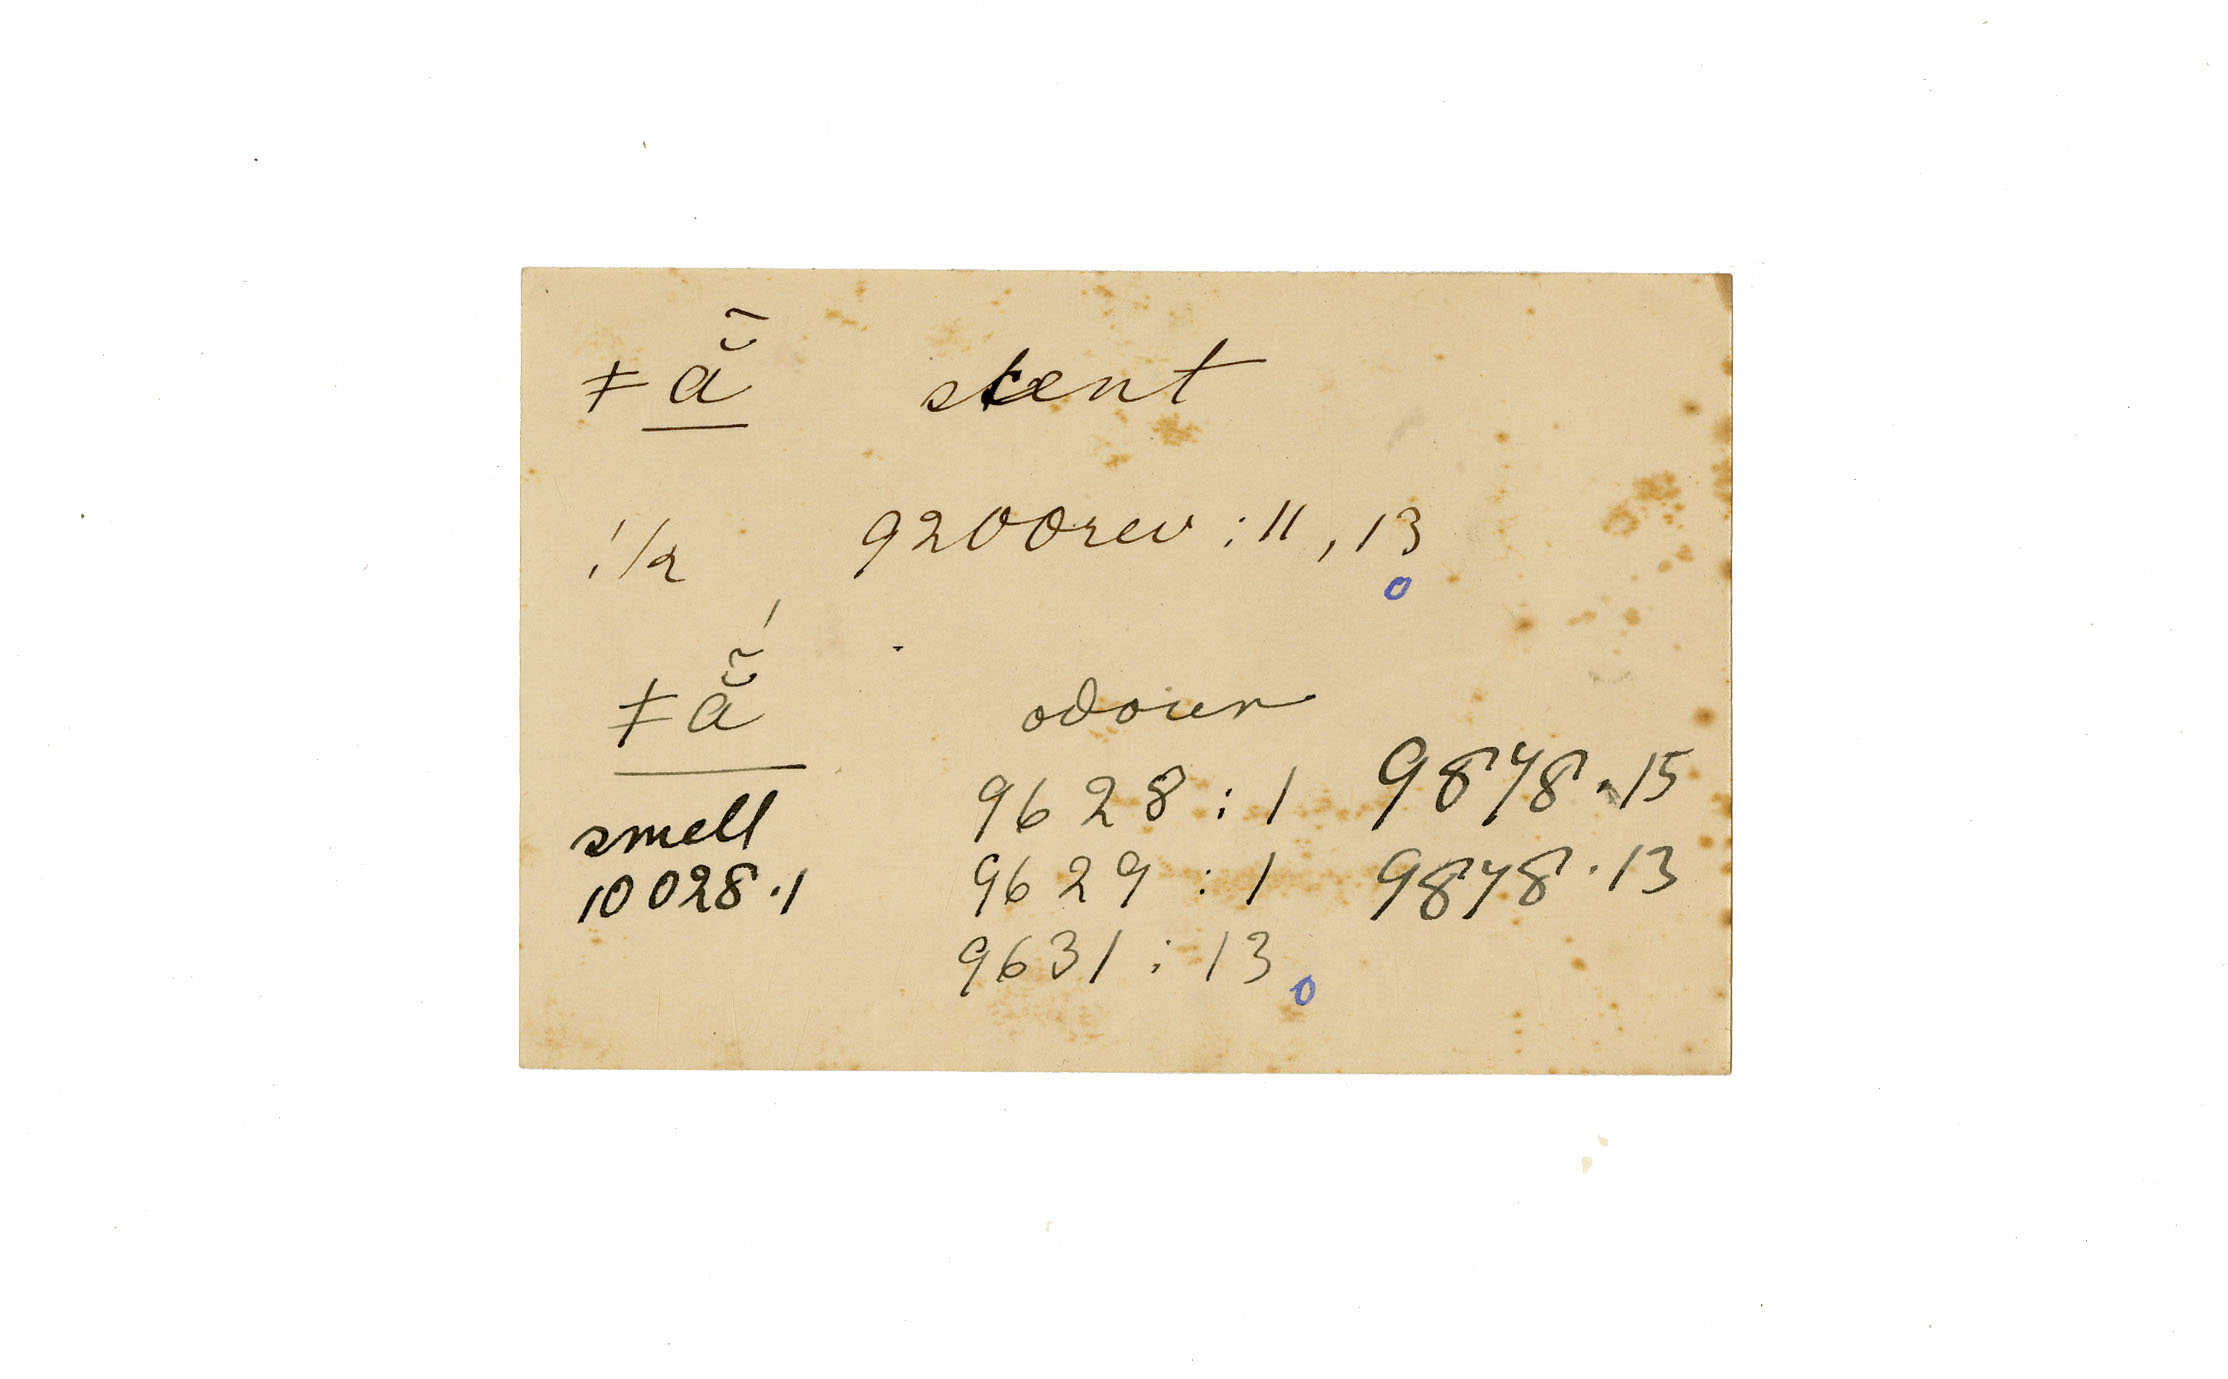 ǂẵ scent
!k 9200rev : 11, 13
ǂẵ́ odour
smell 9628 : 1 9878.15
10028.1 9629 : 1 9878.13
9631 : 13